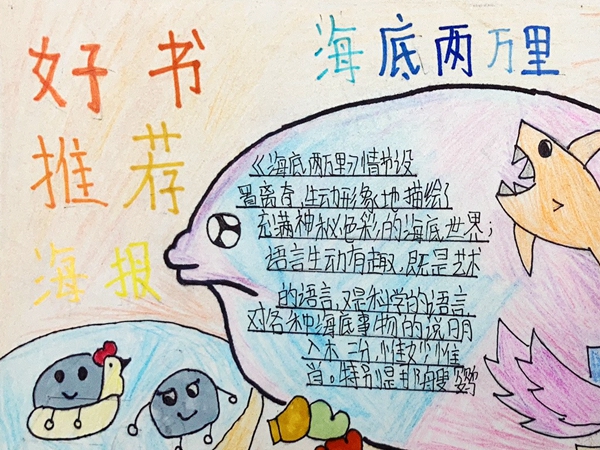 好书
推荐
海报
海底两万里
《海底两万里》情节设
置离奇,生动形象地描绘了
充满神秘色彩的海底世界;
语言生动有趣,既是艺术
的语言,又是科学的语言
对各种海底事物的说明
入木三分,惟妙惟
肖。特别是那